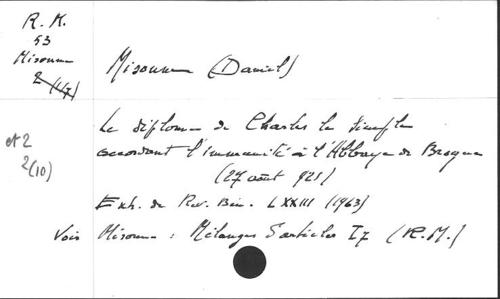 R. M.
53
Misonne
2 (1/7)
Misonne (Daniel)
et 2
2(10)
Le diplôme de Charles le Simple
accordant l'immunité à l'Abbaye de Brogne
(27 août 921)
Extr. de Rev. Bén. LXXIII (1963)
Vois Misonne : Mélanges d'articles I 7 (R.M.)